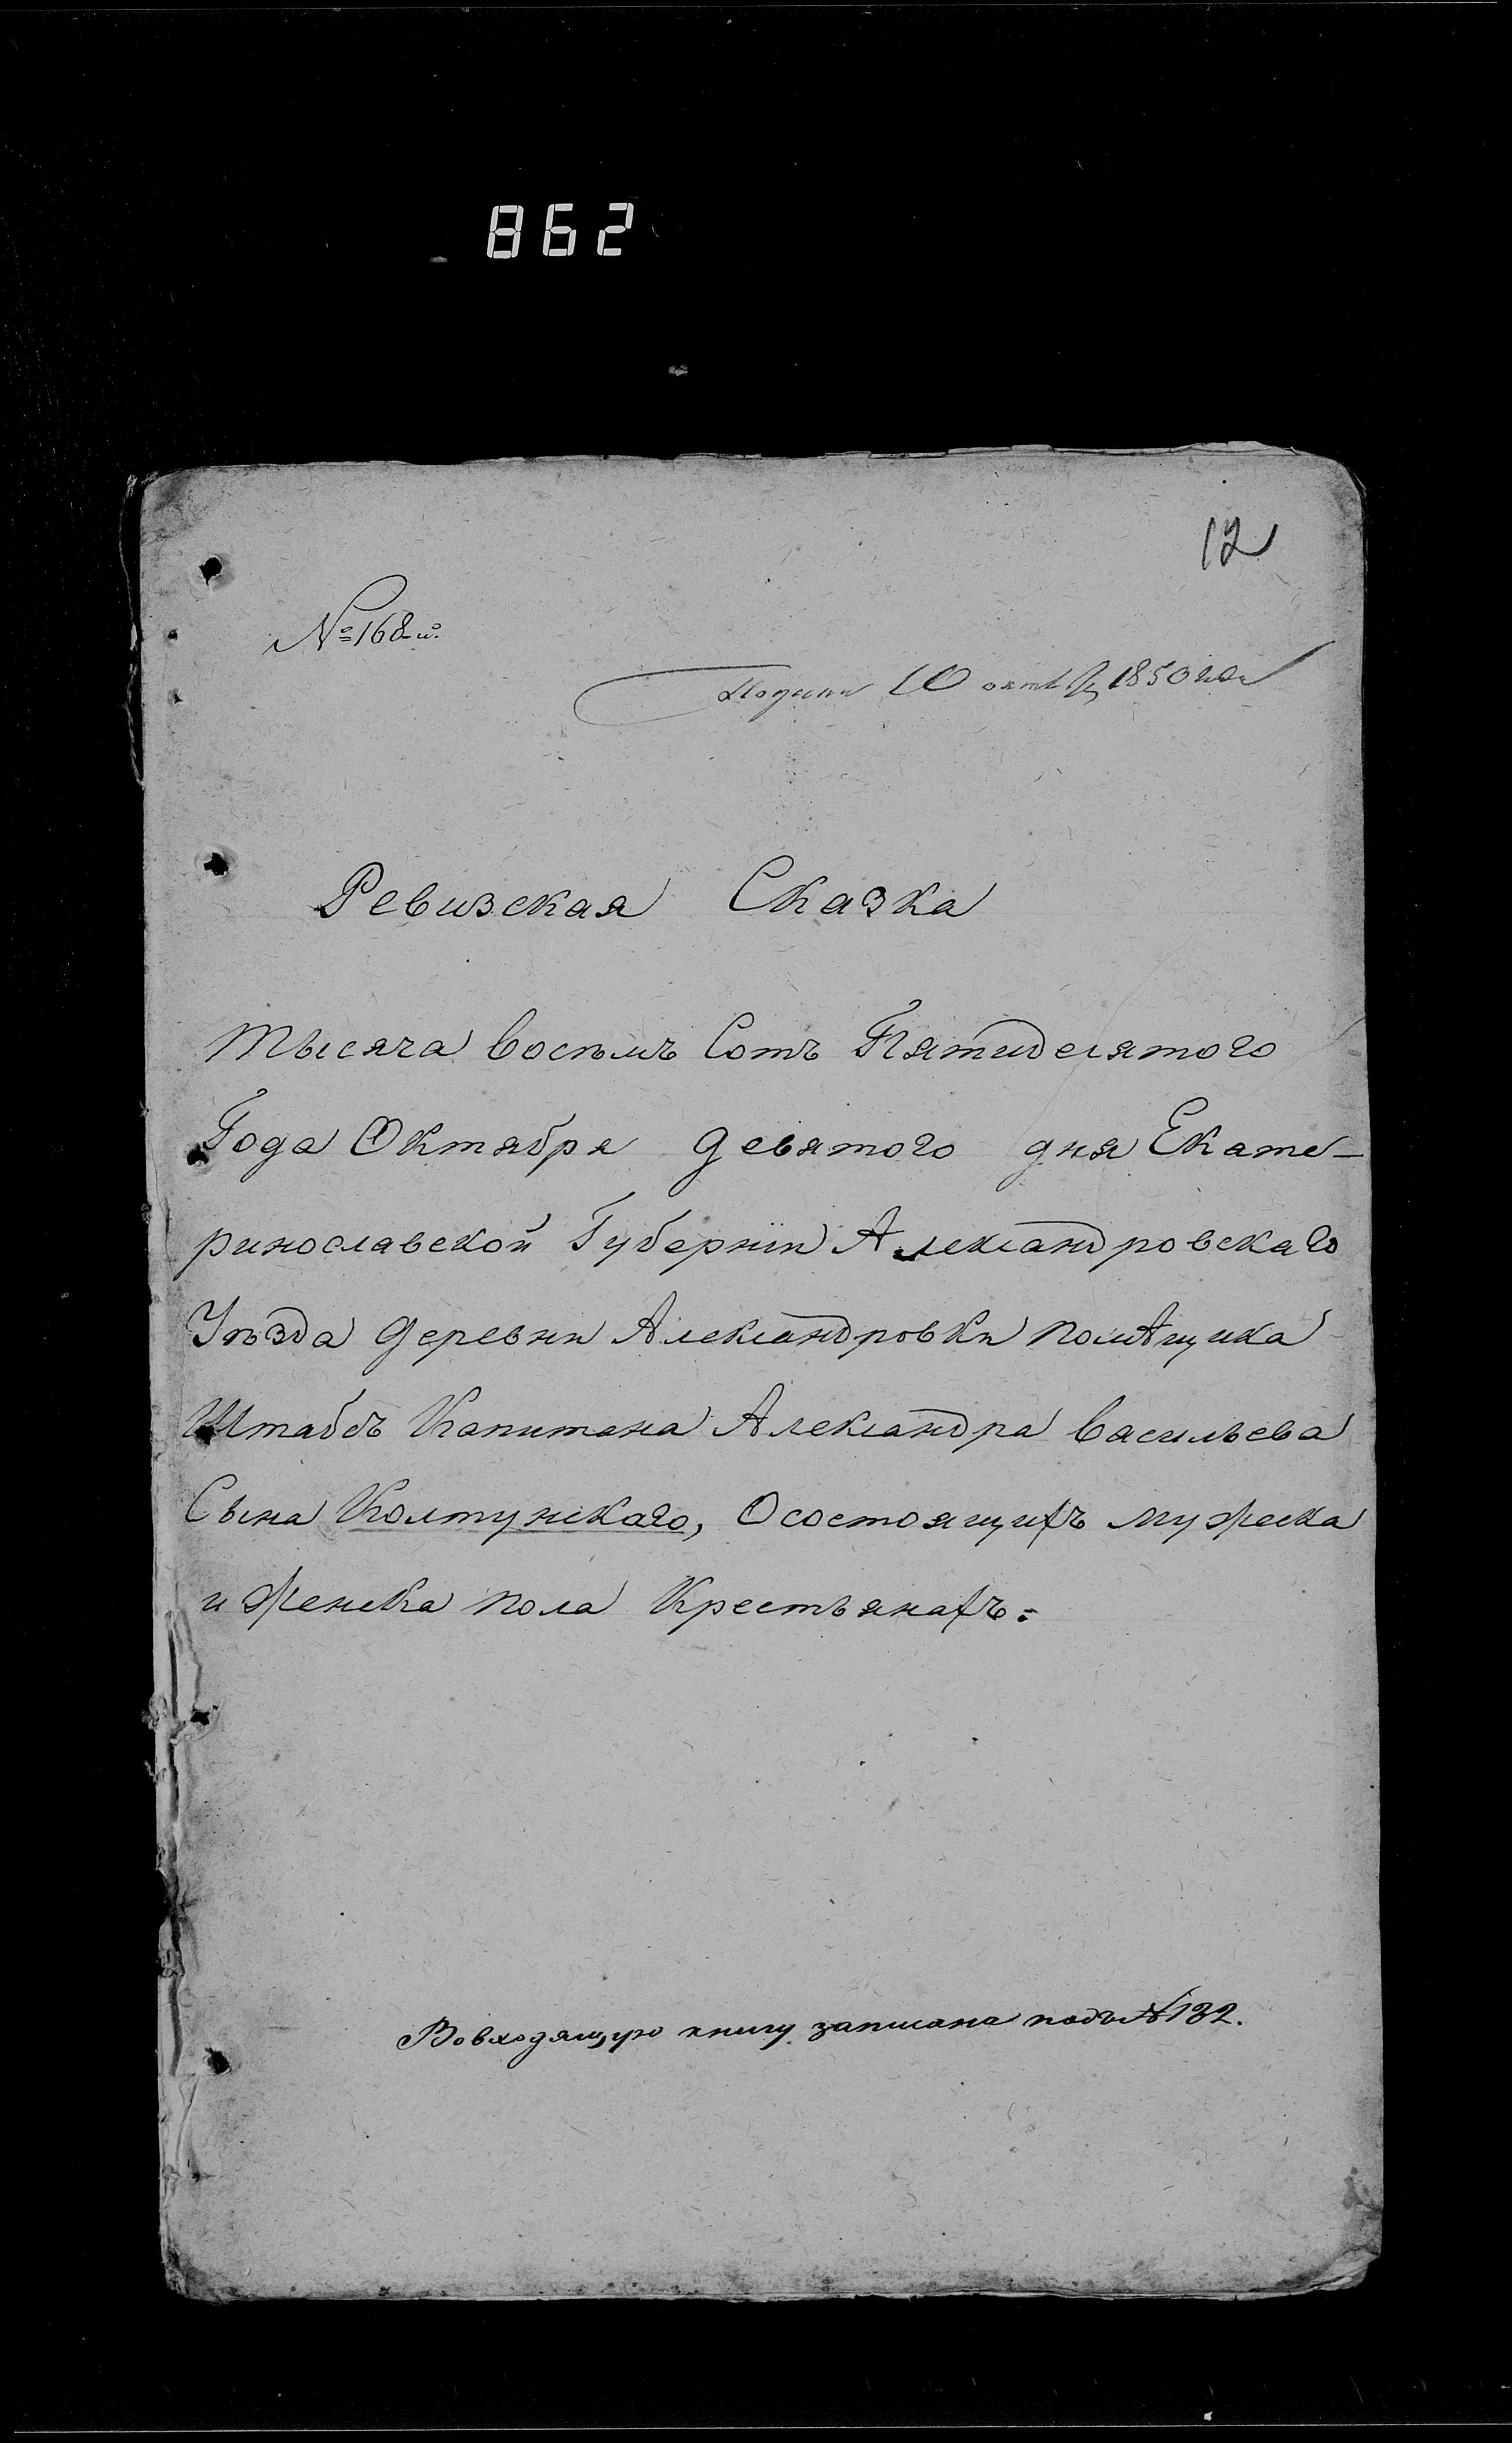 862
12
№168-й.
10 октб 1850 года
Ревизская Сказка
Тысяча восемъ Сотъ Пятидесятого
Года Октября девятого дня Екате-
ринославской Губерніи Александровскаго
Уѣзда деревни Александровки помѣщика
Штабсъ Капитана Александра Васильева
Сына Колтунскаго, Осостоящихъ мужеска
и женска пола Крестьянахъ:
Вовходящую книгу записана подъ №132.